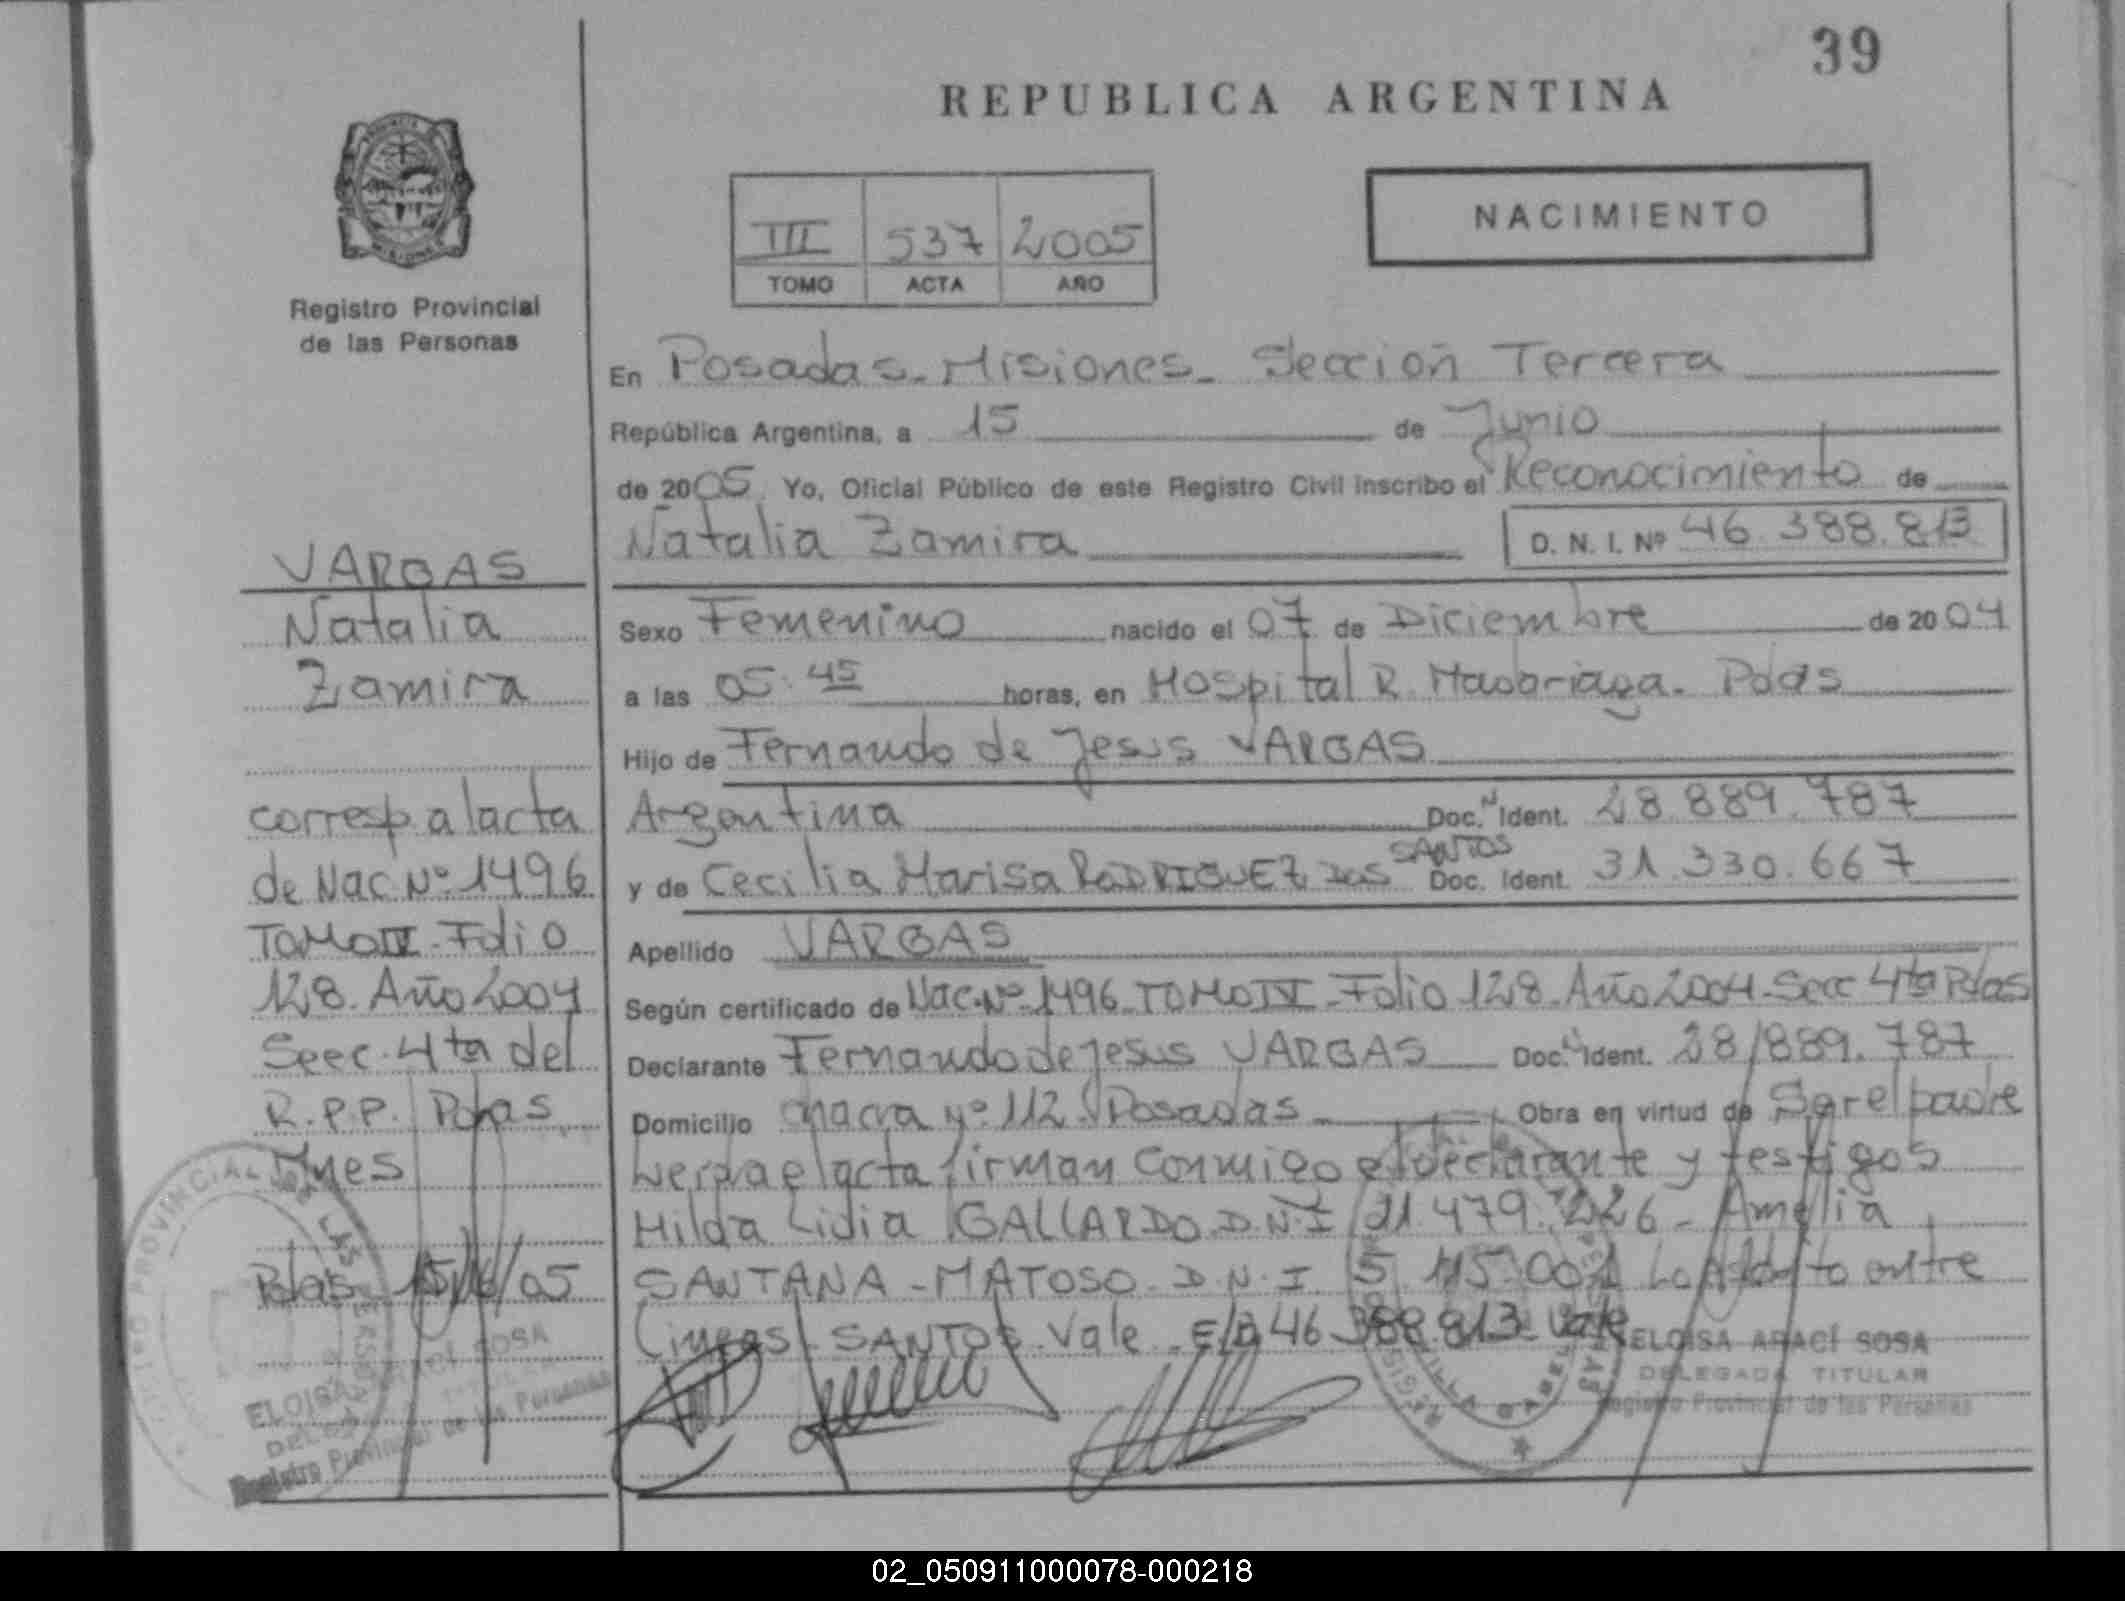 39
REPUBLICA ARGENTINA
III 537 2005
TOMO ACTA AÑO
NACIMIENTO
Registro Provincial
de las Personas
VARGAS
Natalia
Zamira
corresp. a lacta
de Nac. Nº 1496
TOMO IV. Folio
128. Año 2004
Secc. 4ta del
R.P.P. Pdas
Mnes
Pdas 15/6/05
En Posadas - Misiones - Sección Tercera
República Argentina, a 15 de Junio
de 2005. Yo, Oficial Público de este Registro Civil inscribo el Reconocimiento de
Natalia Zamira D. N. I. Nº 46.388.813
Sexo Femenino nacido el 07 de Diciembre de 2004
a las 05:45 horas, en Hospital R. Madariaga. Pdas
Hijo de Fernando de Jesus VARGAS
Argentina Doc. N Ident. 28.889.787
SANTOS
y de Cecilia Marisa RODRIGUEZ DOS Doc. Ident. 31.330.667
Apellido VARGAS
Según certificado de Nac. Nº 1496 TOMO IV - Folio 128 - Año 2004 - Secc 4ta Pdas
Declarante Fernando de Jesus VARGAS Doc. Ident. 28/889.787
Domicilio chacra Nº 112. Posadas Obra en virtud de Ser el padre
acta firman conmigo el declarante y testigos
Hilda Lidia GALLARDO D.N.I 21.479.226 - Amelia
SANTANA - MATOSO - D.N.I. 5.115.001 entre
Lineas - SANTOS - Vale - 46.388.813 - Vale
ELOISA ARACÍ SOSA
DELEGADA TITULAR
Registro Provincial de las Personas
ELOISA ARACÍ SOSA
Registro Provincial de las Personas
02_050911000078-000218